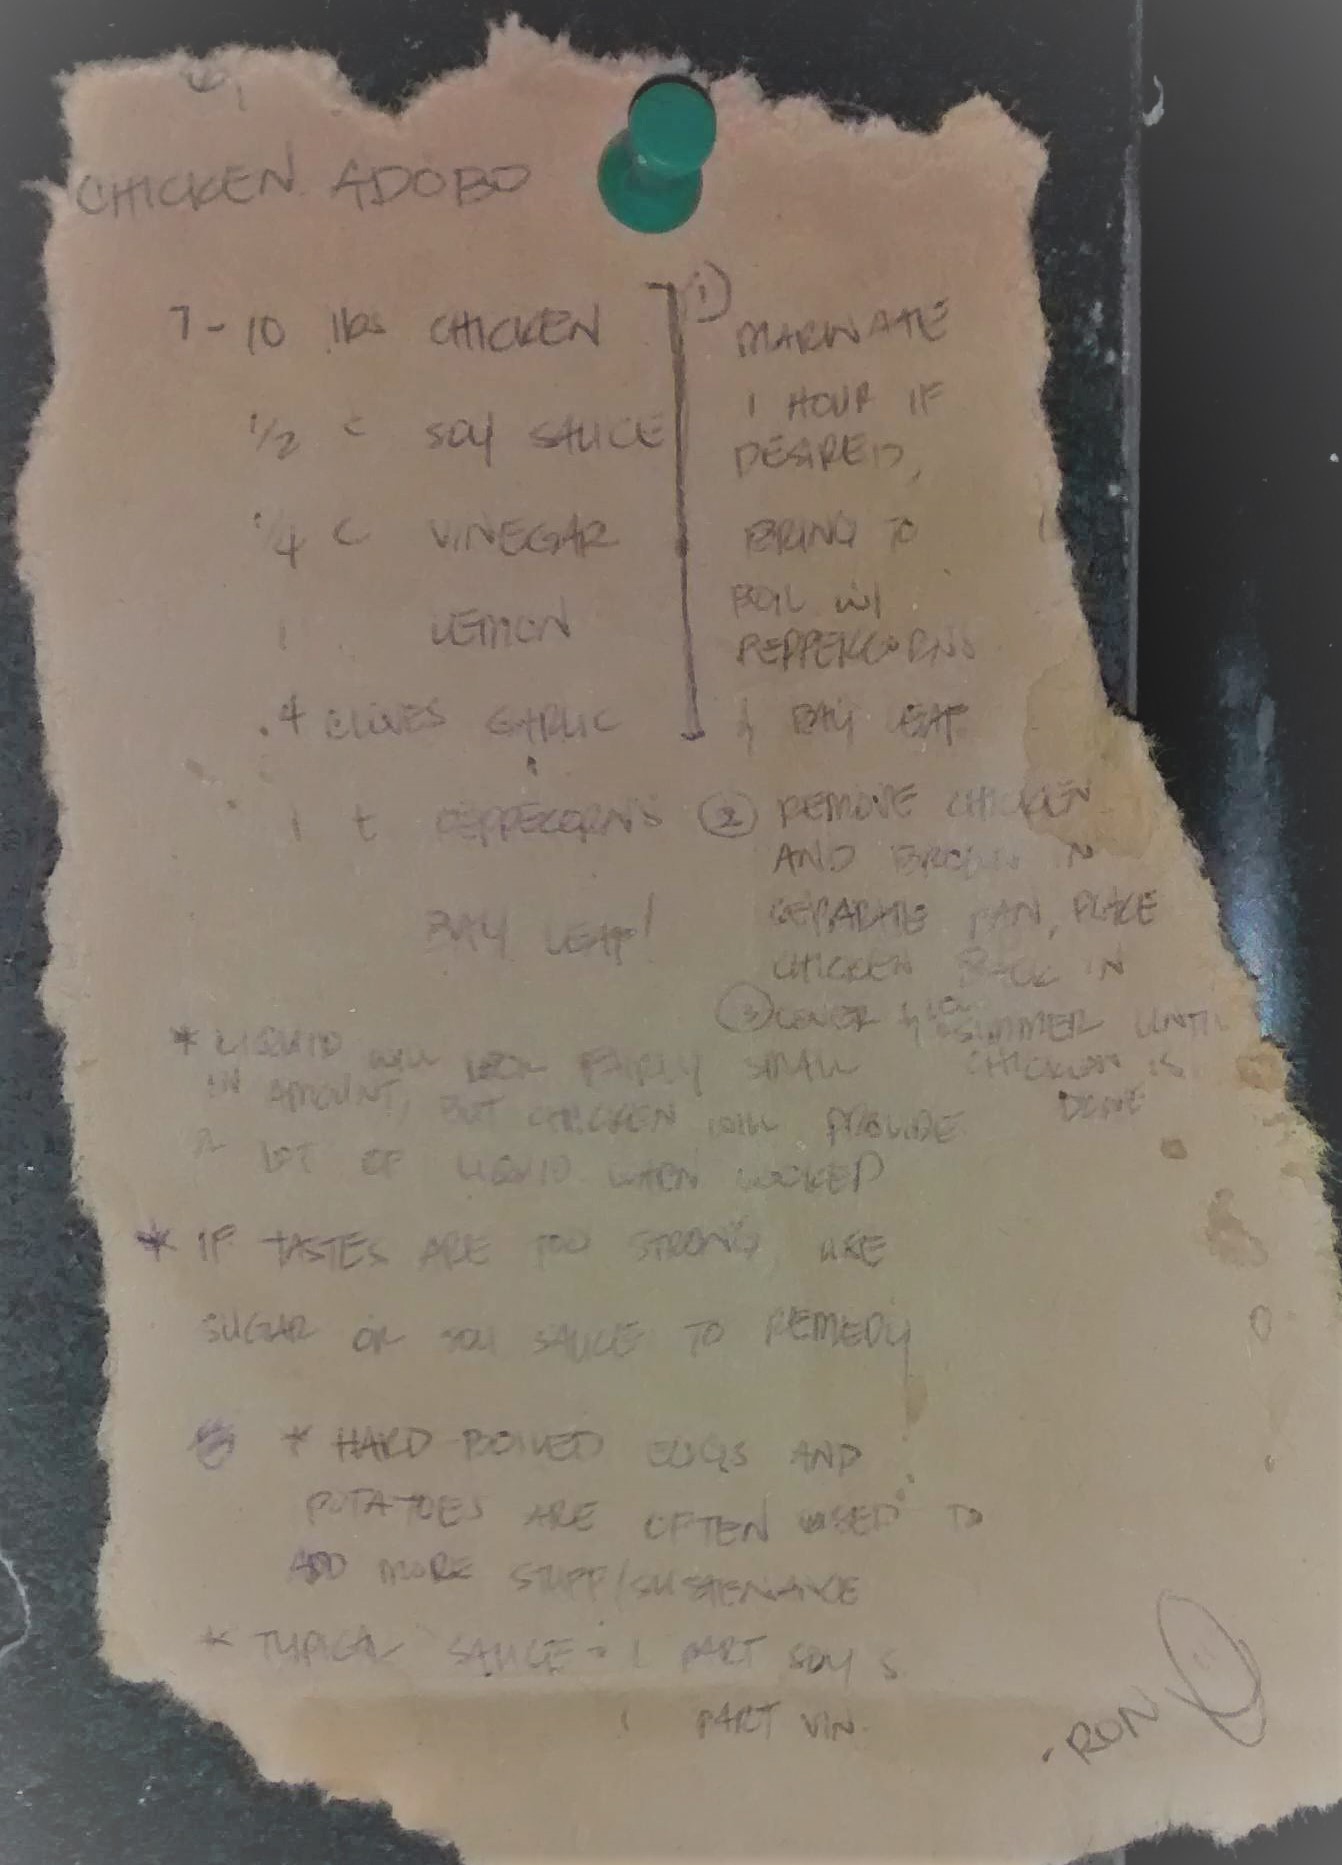 CHICKEN ADOBO
7-10 lbs CHICKEN
1/2 C SOY SAUCE
1/4 C VINEGAR
1 LEMON
4 CLOVES GARLIC
1 t PEPPECORNS
BAY LEAF!
① MARINATE
1 HOUR IF
DESIRED,
BRING TO
BOIL W/
PEPPERCORNS
& BAY LEAF
② REMOVE CHICKEN
AND BROWN IN
SEPARATE PAN, PLACE
CHICKEN BACK IN
③ COVER & SIMMER UNTIL
CHICKEN IS
DONE
* LIQUID WILL LOOK FAIRLY SMALL
IN AMOUNT, BUT CHICKEN WILL PROVIDE
A LOT OF LIQUID WHEN COOKED
* IF TASTES ARE TOO STRONG, USE
SUGAR OR SOY SAUCE TO REMEDY
* HARD BOILED EGGS AND
POTATOES ARE OFTEN USED TO
ADD MORE STUFF/SUSTENANCE
* TYPICAL SAUCE = 1 PART SOY S
1 PART VIN.
- RON